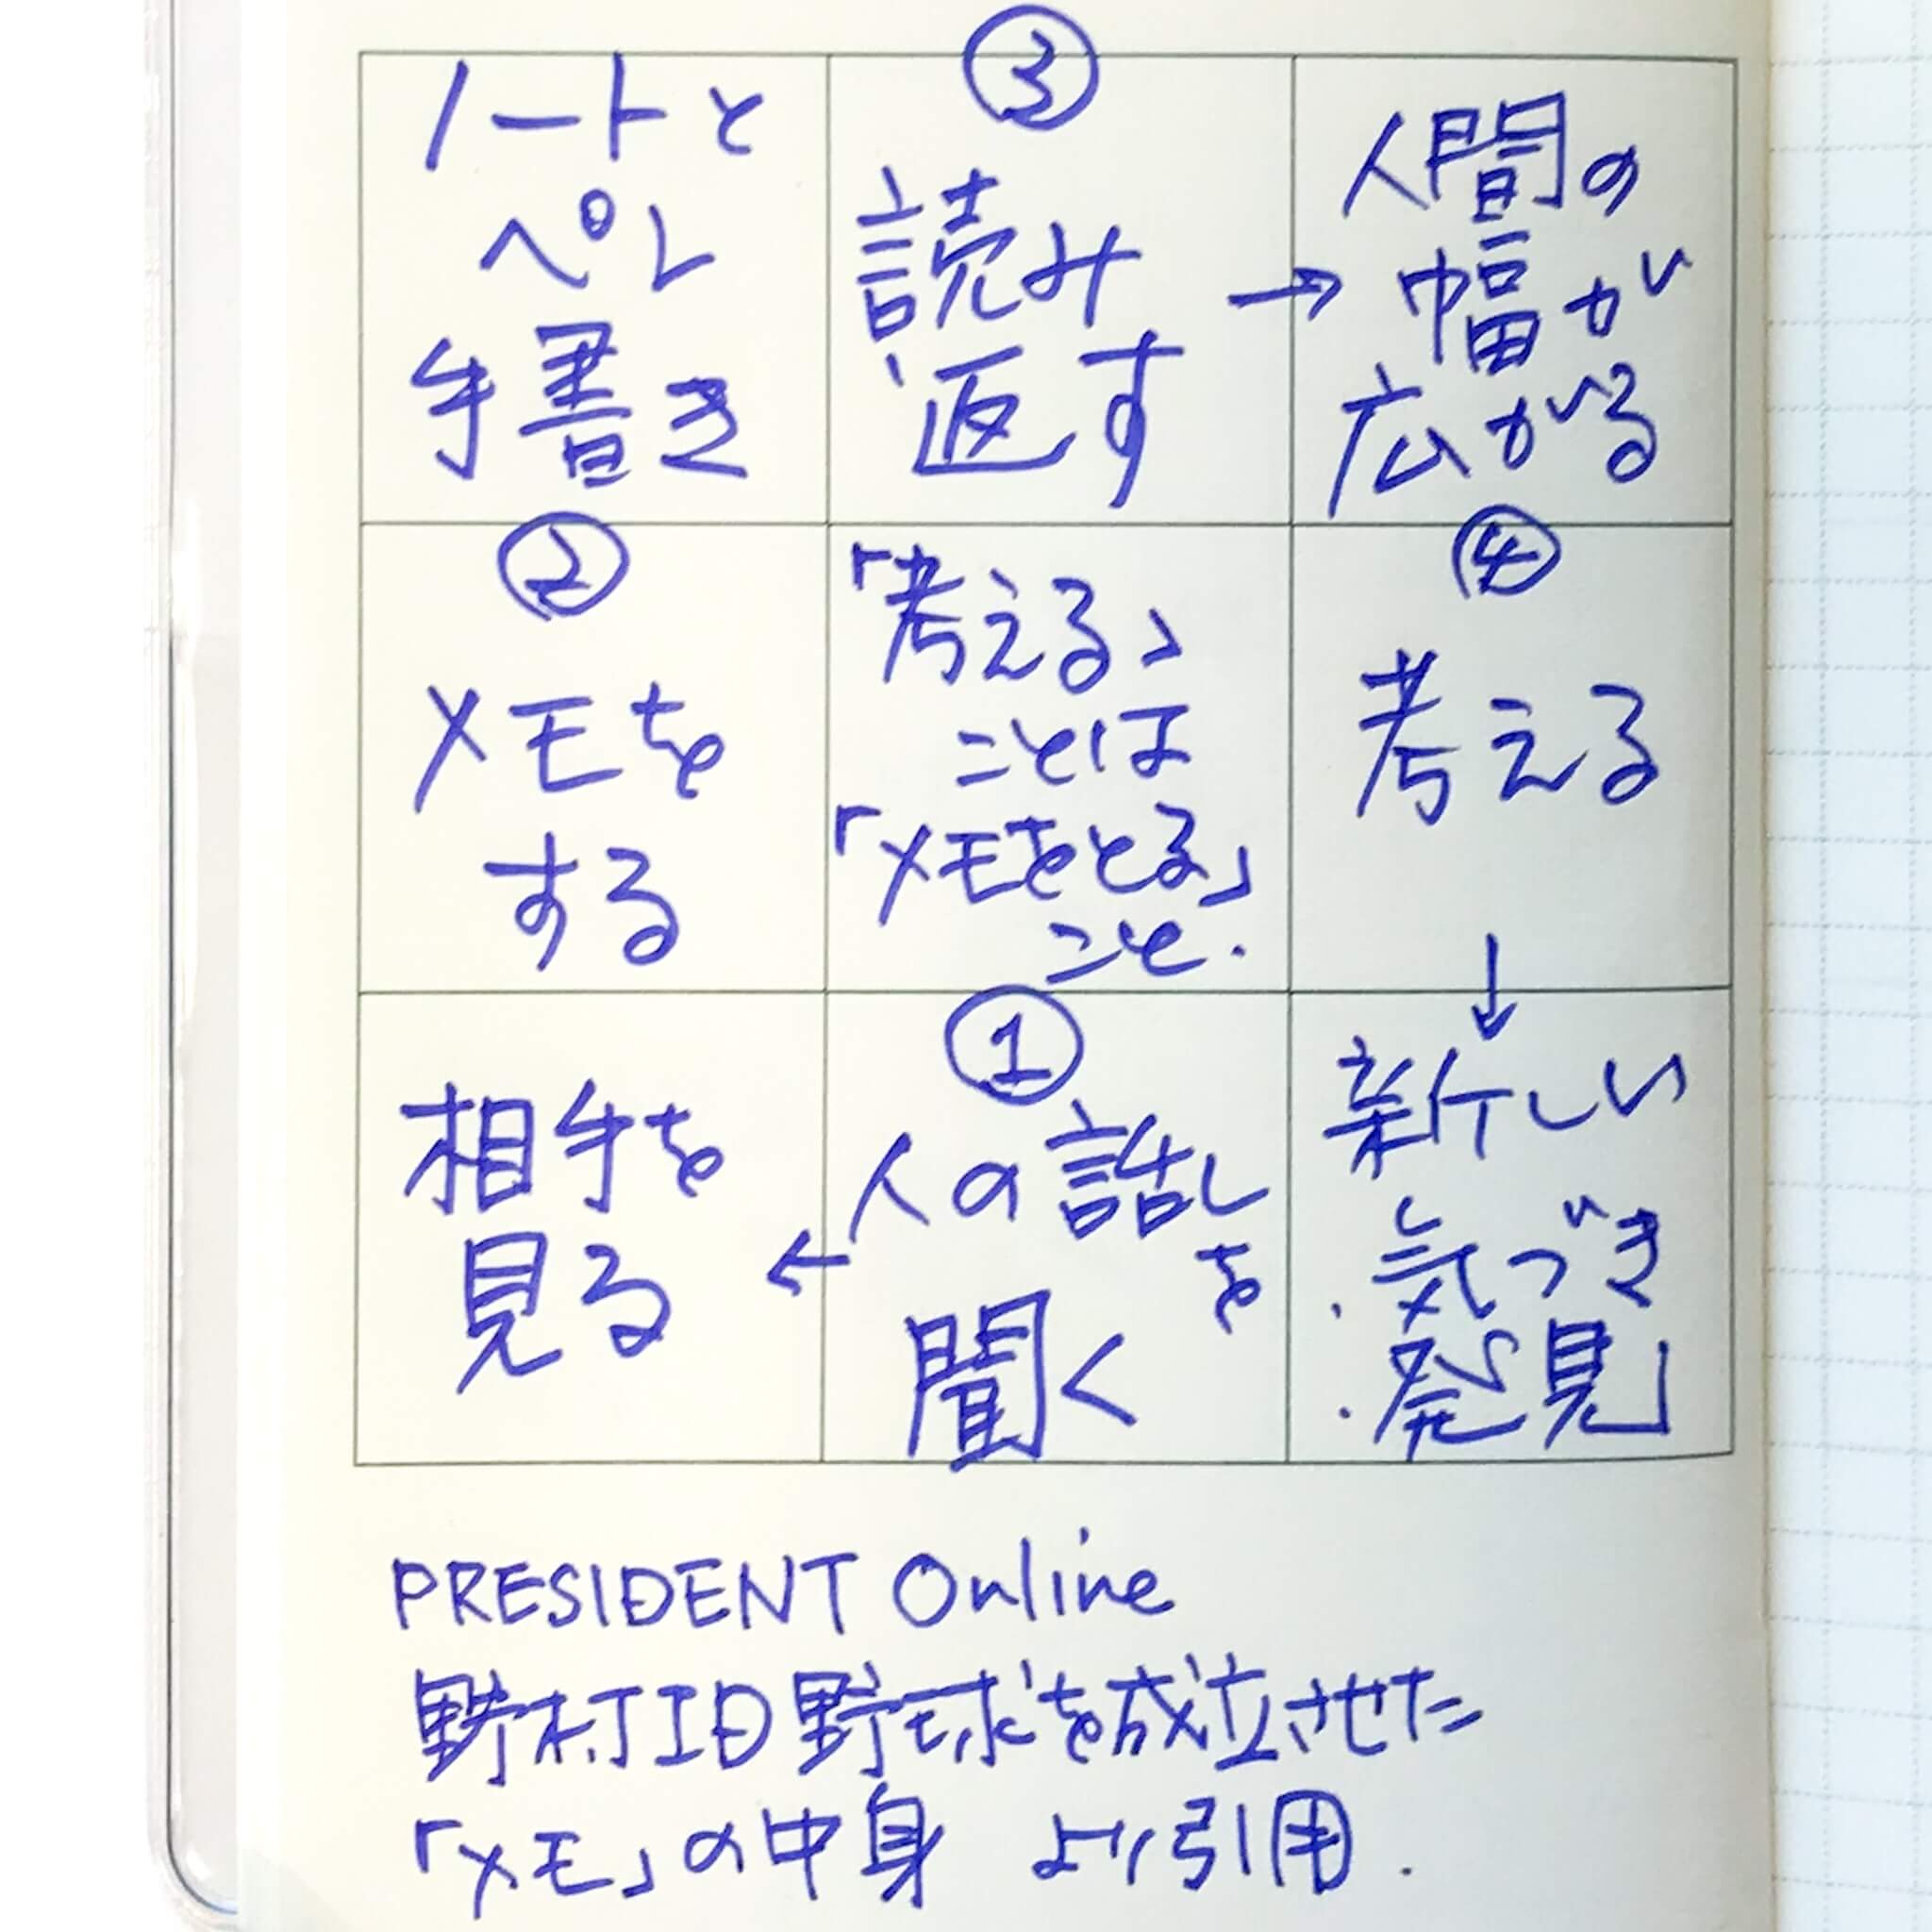 ノートと
ペン
手書き
③
読み
返す
→ 人間の
幅が
広がる
②
メモを
する
「考える」
ことは
「メモをとる」
こと.
④
考える
↓
相手を
見る
①
← 人の話し
を
聞く
新しい
・気づき
・発見
PRESIDENT Online
野村ID野球を成立させた
「メモ」の中身 より引用.